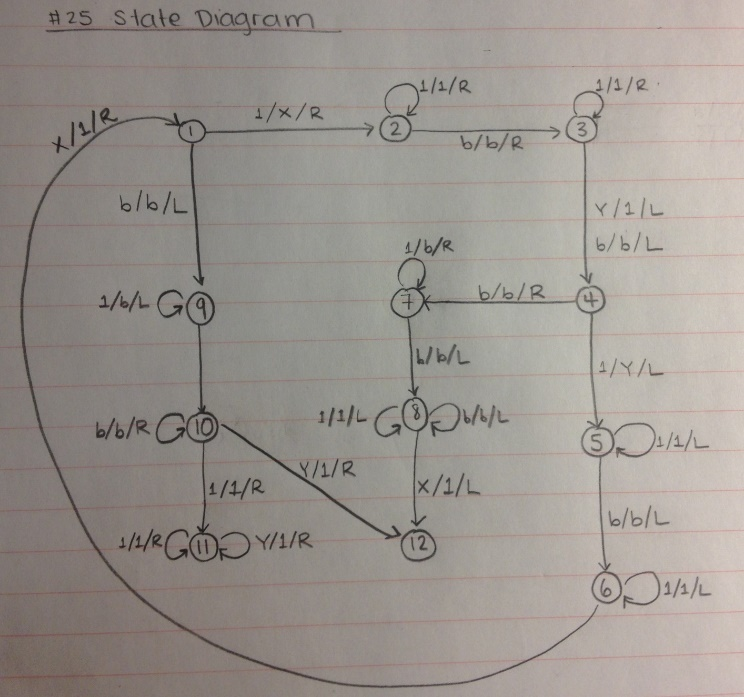 #25 State Diagram
1/1/R
1/1/R
X/1/R
1
1/X/R
2
b/b/R
3
b/b/L
Y/1/L
b/b/L
1/b/R
1/b/L
9
7
b/b/R
4
b/b/L
1/Y/L
b/b/R
10
1/1/L
8
b/b/L
5
1/1/L
Y/1/R
1/1/R
X/1/L
b/b/L
1/1/R
11
Y/1/R
12
6
1/1/L